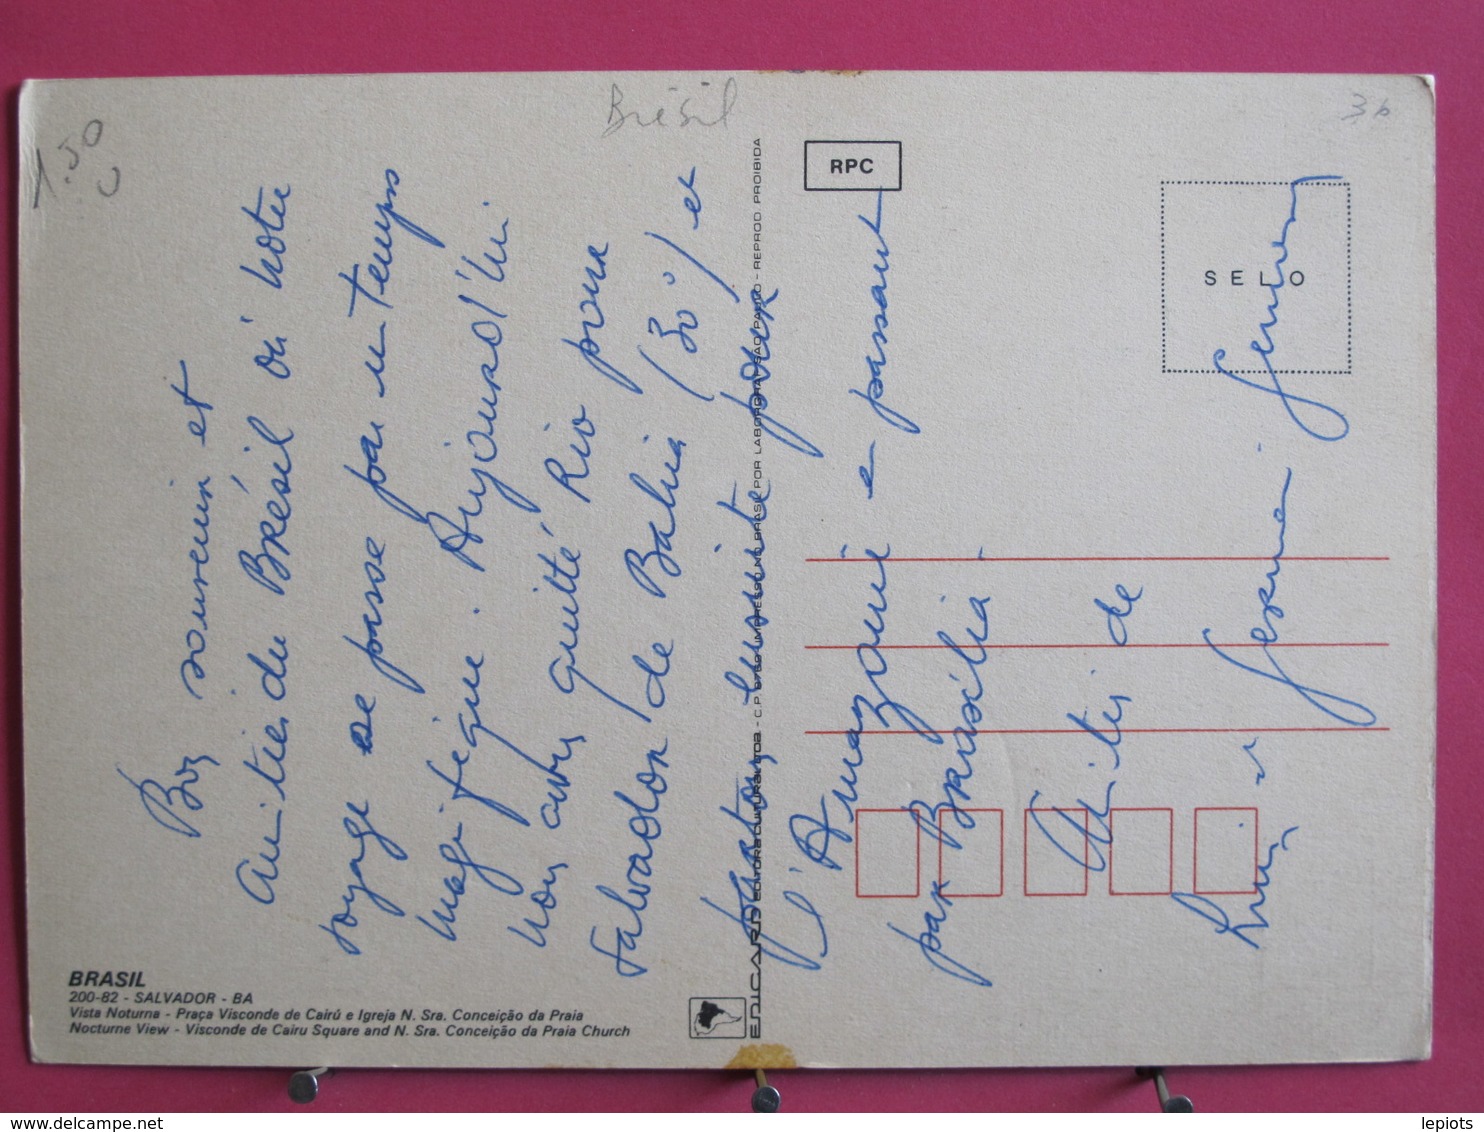 Brésil
1.50
36
RPC
SELO
Bon souvenir et
amitiés du Brésil où notre
voyage se passe par un temps
magnifique. Aujourd'hui
nous avons quitté Rio pour
Salvador de Bahia (30°) et
partons ensuite pour
l'Amazonie en passant
par Brasilia.
Amitiés de
BRASIL
200-82 - SALVADOR - BA
Vista Noturna - Praça Visconde de Cairú e Igreja N. Sra. Conceição da Praia
Nocturne View - Visconde de Cairu Square and N. Sra. Conceição da Praia Church
EDICARD EDITORA CULTURAL LTDA - C.P. 8766 IMPRESSO NO BRASIL POR LABORGRAF - SÃO PAULO - REPROD PROIBIDA
lepiots